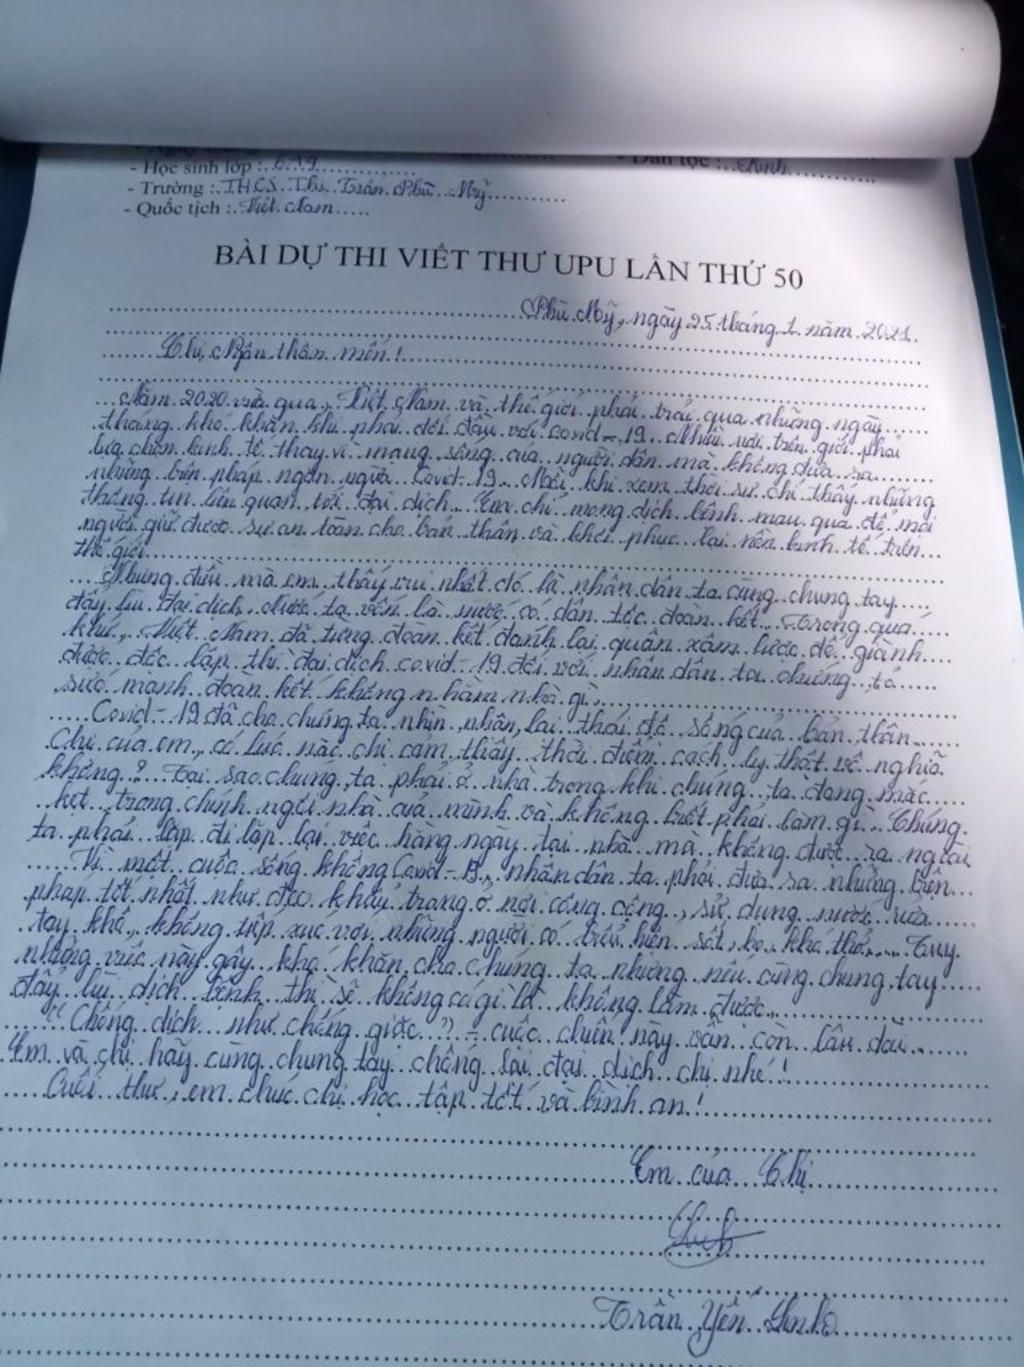 - Học sinh lớp :
- Dân tộc : Kinh
- Trường : THCS Thị Trấn Phù Mỹ
- Quốc tịch : Việt Nam
BÀI DỰ THI VIẾT THƯ UPU LẦN THỨ 50
Phù Mỹ, ngày 25 tháng 1 năm 2021.
Chị Ngân thân mến!
Năm 2020 vừa qua, Việt Nam và thế giới phải trải qua những ngày
tháng khó khăn khi phải đối đầu với covid-19. Nhiều nơi trên giới phải
lựa chọn kinh tế thay vì mạng sống của người dân mà không đưa ra
những biện pháp ngăn ngừa Covid-19. Mỗi khi xem thời sự chỉ thấy những
thông tin liên quan tới đại dịch. Em chỉ mong dịch bệnh mau qua để mọi
người giữ được sự an toàn cho bản thân và khôi phục lại nền kinh tế trên
thế giới.
Nhưng điều mà em thấy vui nhất đó là nhân dân ta cùng chung tay
đẩy lùi đại dịch. Nước ta vốn là nước có dân tộc đoàn kết. Trong quá
khứ, Việt Nam đã từng đoàn kết đánh lại quân xâm lược để giành
được độc lập thì đại dịch covid-19 đối với nhân dân ta chứng tỏ
sức mạnh đoàn kết không nhằm nhò gì.
Covid-19 đã cho chúng ta nhìn nhận lại thái độ sống của bản thân.
Chị của em, có lúc nào chị cảm thấy thời điểm cách ly thật vô nghĩa
không? Tại sao chúng ta phải ở nhà trong khi chúng ta đang mắc
kẹt trong chính ngôi nhà của mình và không biết phải làm gì. Chúng
ta phải lặp đi lặp lại việc hàng ngày tại nhà mà không được ra ngoài
Vì một cuộc sống không Covid-19, nhân dân ta phải đưa ra những biện
pháp tốt nhất như đeo khẩu trang ở nơi công cộng, sử dụng nước rửa
tay khô, không tiếp xúc với những người có biểu hiện sốt, ho, khó thở... Tuy
những việc này gây khó khăn cho chúng ta nhưng nếu cùng chung tay
đẩy lùi dịch bệnh thì sẽ không có gì là không làm được.
"Chống dịch như chống giặc" - cuộc chiến này vẫn còn lâu dài.
Em và chị hãy cùng chung tay chống lại đại dịch chị nhé!
Cuối thư, em chúc chị học tập tốt và bình an!
Em của Chị
Linh
Trần Yến Linh